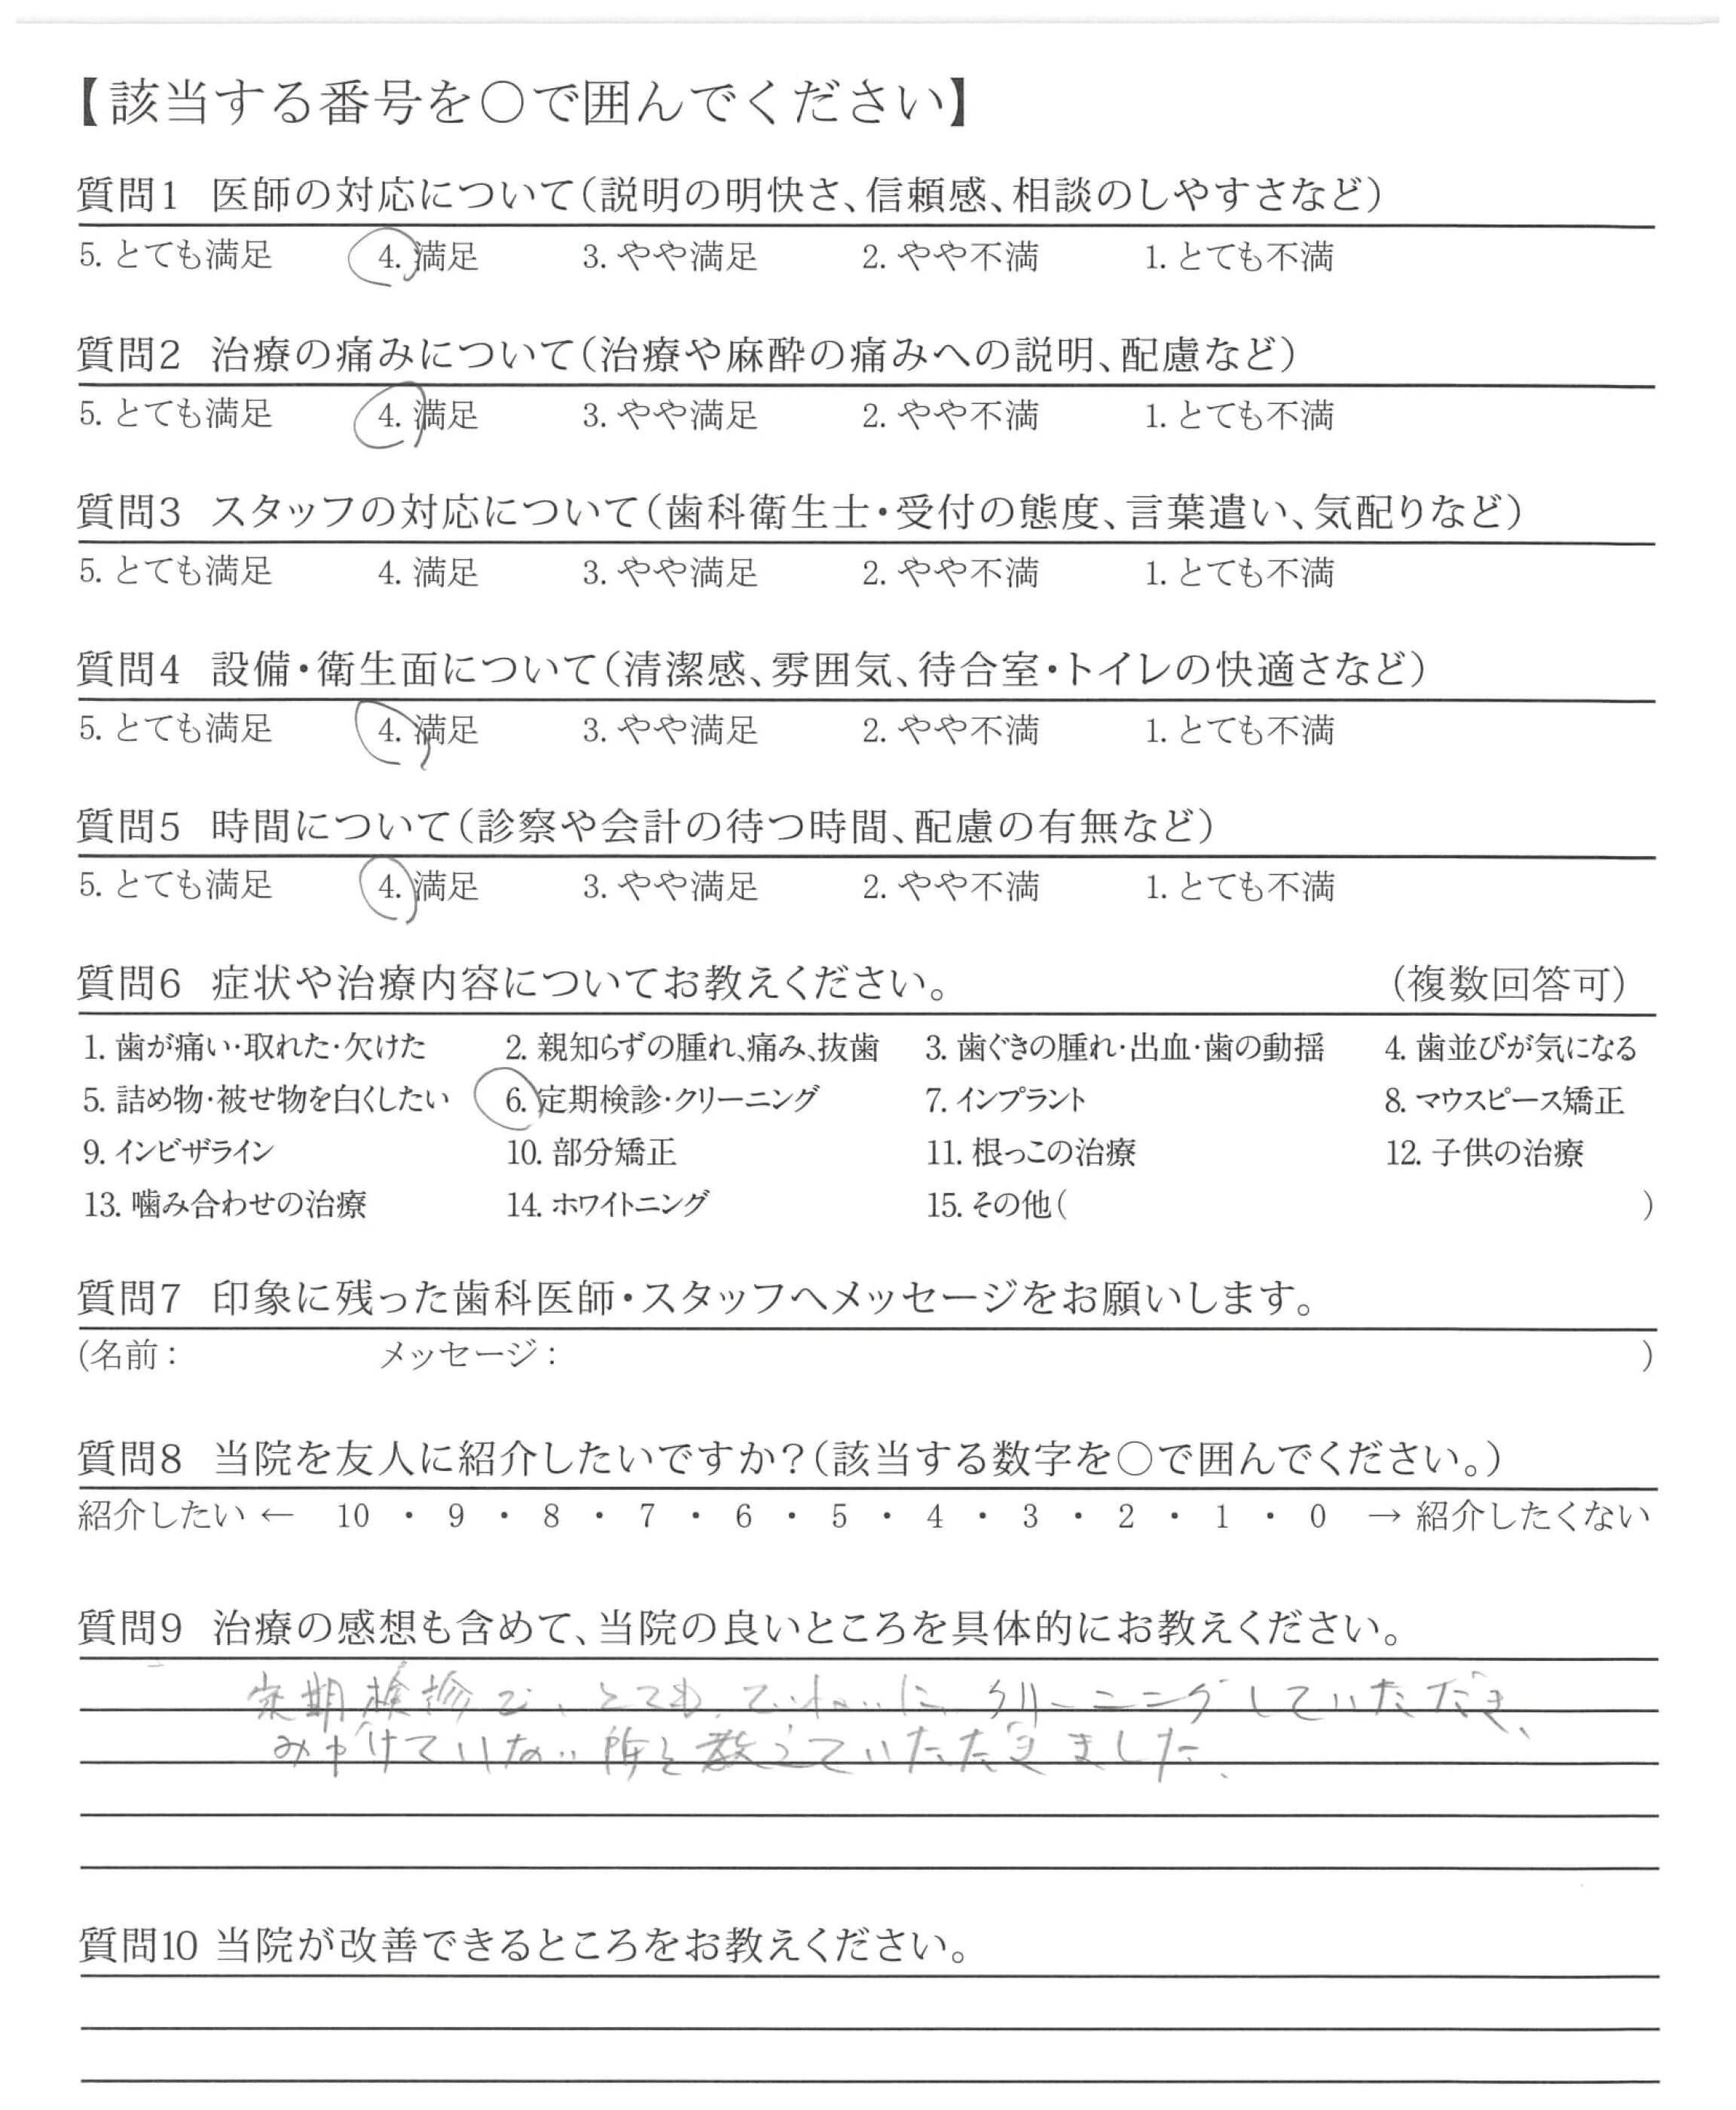 【該当する番号を○で囲んでください】
質問1 医師の対応について(説明の明快さ、信頼感、相談のしやすさなど)
5. とても満足 4. 満足 3. やや満足 2. やや不満 1. とても不満
質問2 治療の痛みについて(治療や麻酔の痛みへの説明、配慮など)
5. とても満足 4. 満足 3. やや満足 2. やや不満 1. とても不満
質問3 スタッフの対応について(歯科衛生士・受付の態度、言葉遣い、気配りなど)
5. とても満足 4. 満足 3. やや満足 2. やや不満 1. とても不満
質問4 設備・衛生面について(清潔感、雰囲気、待合室・トイレの快適さなど)
5. とても満足 4. 満足 3. やや満足 2. やや不満 1. とても不満
質問5 時間について(診察や会計の待つ時間、配慮の有無など)
5. とても満足 4. 満足 3. やや満足 2. やや不満 1. とても不満
質問6 症状や治療内容についてお教えください。 (複数回答可)
1. 歯が痛い・取れた・欠けた 2. 親知らずの腫れ、痛み、抜歯 3. 歯ぐきの腫れ・出血・歯の動揺 4. 歯並びが気になる
5. 詰め物・被せ物を白くしたい 6. 定期検診・クリーニング 7. インプラント 8. マウスピース矯正
9. インビザライン 10. 部分矯正 11. 根っこの治療 12. 子供の治療
13. 噛み合わせの治療 14. ホワイトニング 15. その他( )
質問7 印象に残った歯科医師・スタッフへメッセージをお願いします。
(名前: メッセージ: )
質問8 当院を友人に紹介したいですか?(該当する数字を○で囲んでください。)
紹介したい ← 10 ・ 9 ・ 8 ・ 7 ・ 6 ・ 5 ・ 4 ・ 3 ・ 2 ・ 1 ・ 0 → 紹介したくない
質問9 治療の感想も含めて、当院の良いところを具体的にお教えください。
定期検診で、とても、ていねいに クリーニングしていただき、
みがけていない所を教えていただきました、
質問10 当院が改善できるところをお教えください。